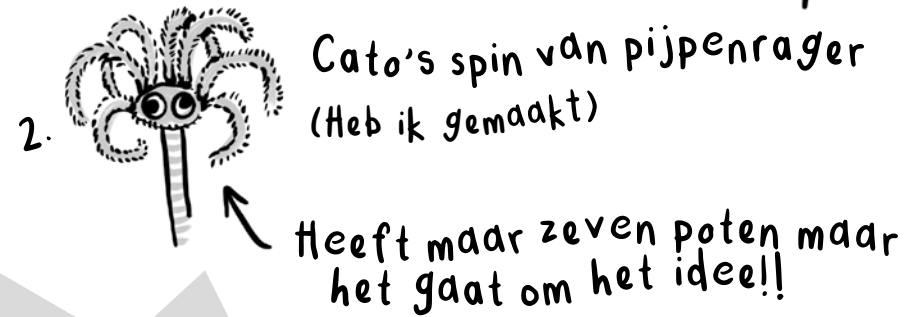 Cato's spin van pijpenrager
2.
(Heb ik gemaakt)
Heeft maar zeven poten maar
het gaat om het idee!!